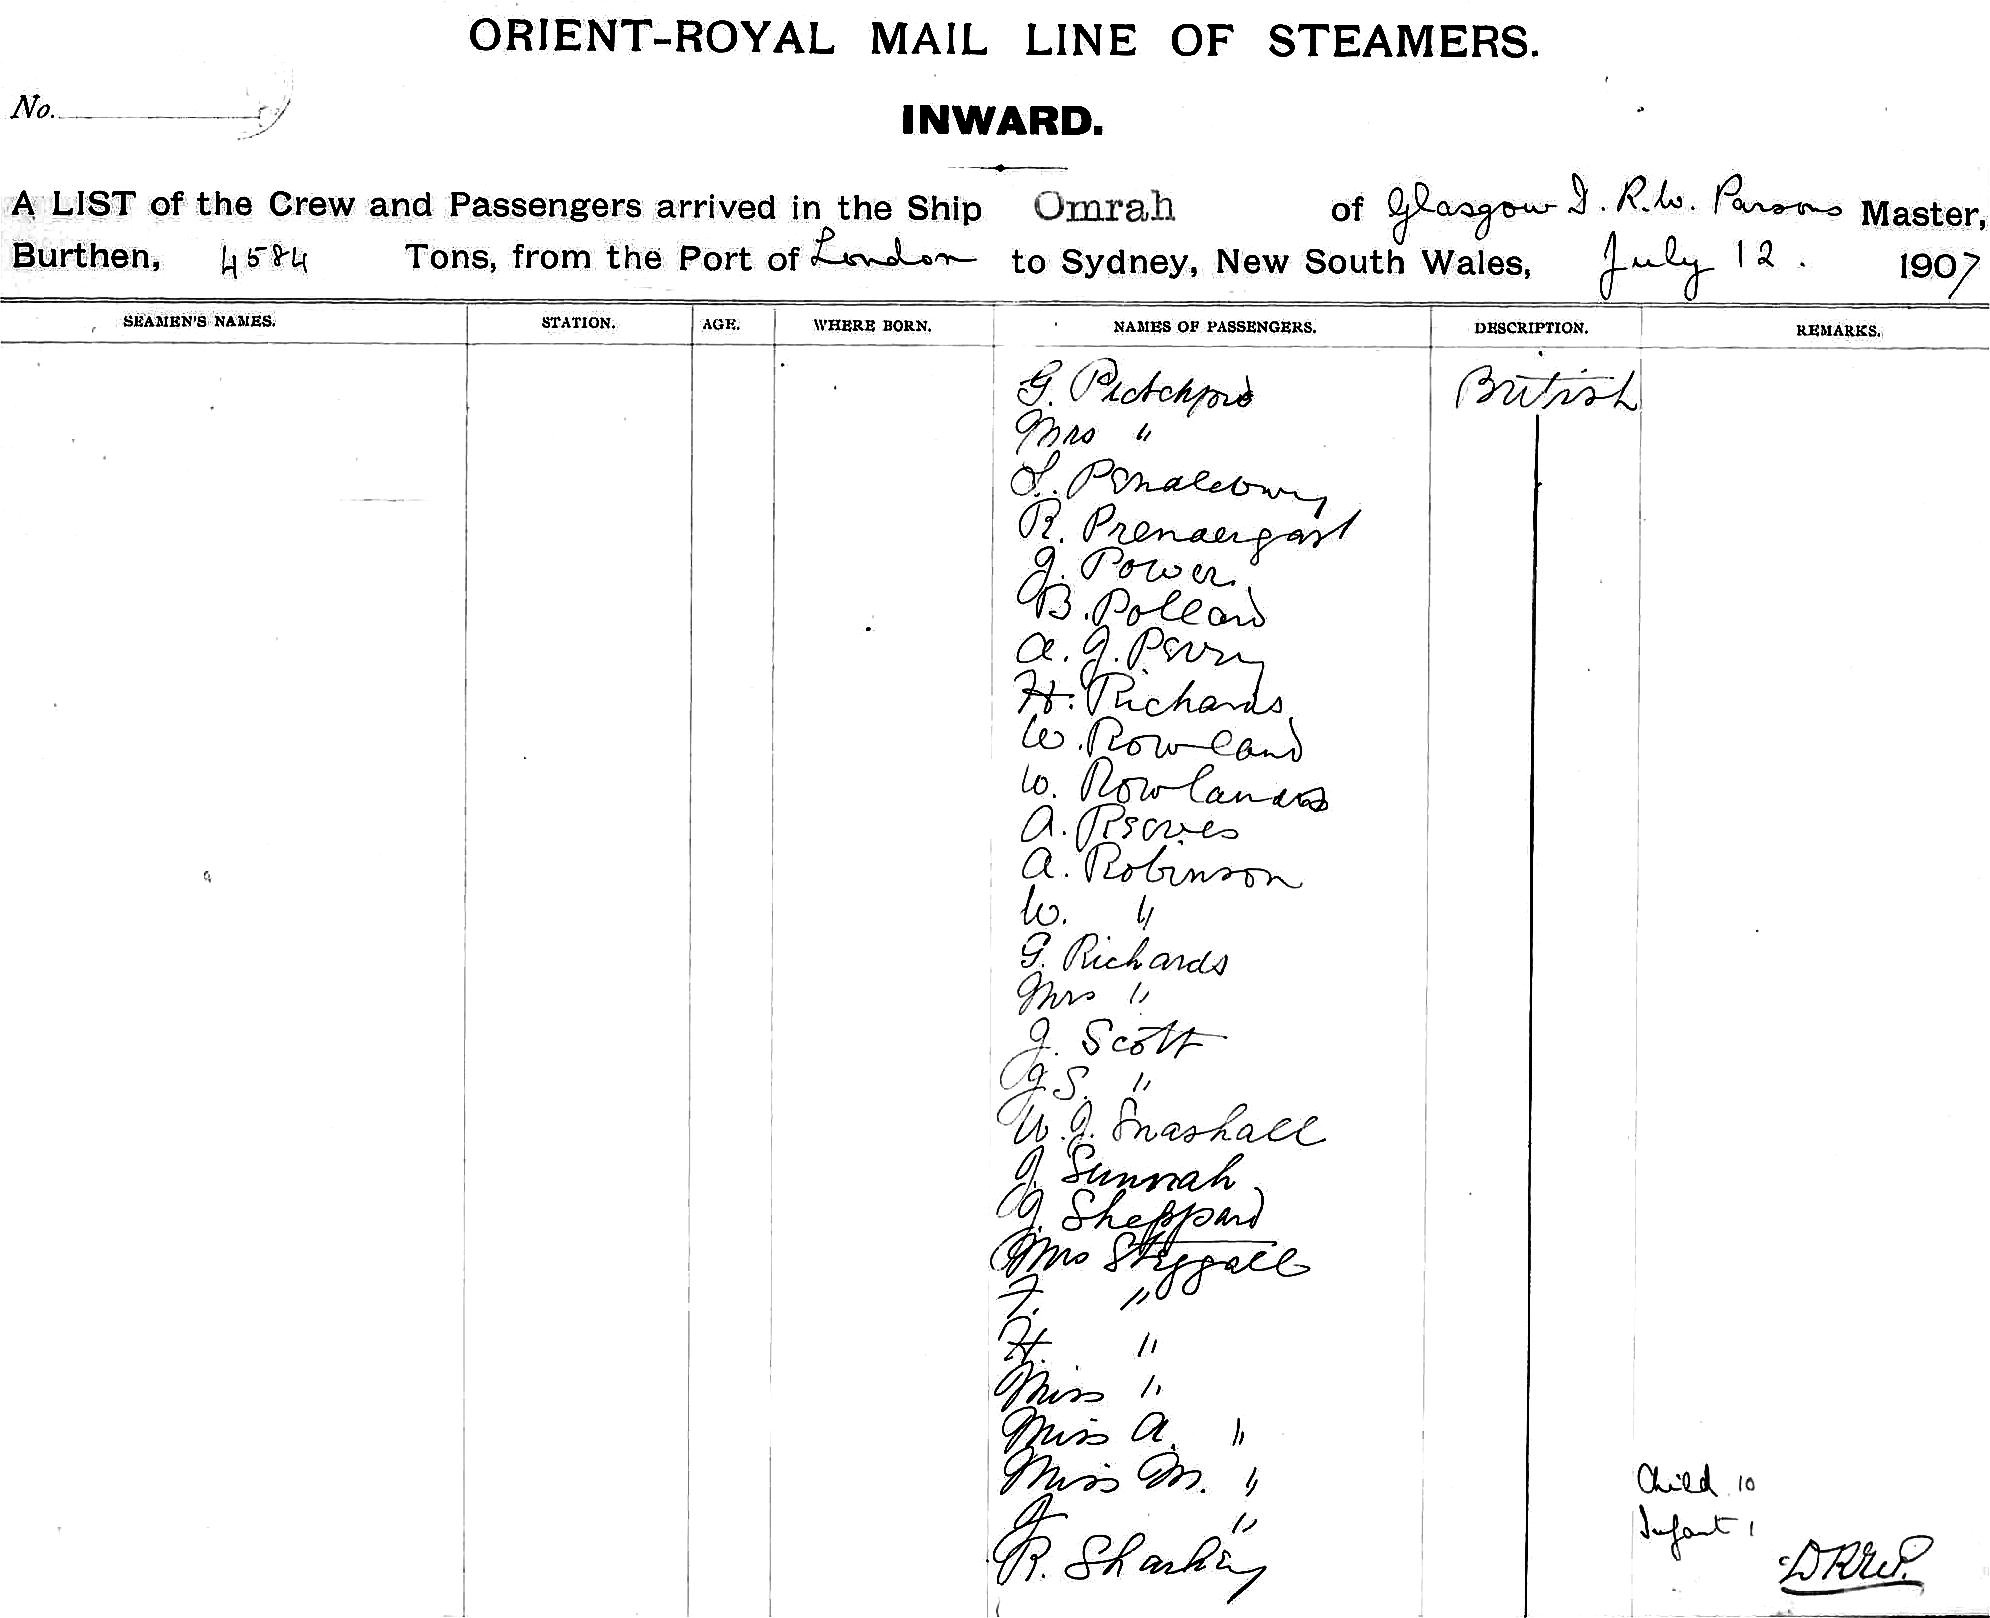 ORIENT-ROYAL MAIL LINE OF STEAMERS.
No.
INWARD.
A LIST of the Crew and Passengers arrived in the Ship Omrah of Glasgow D. R.W. Parsons Master,
Burthen, 4584 Tons, from the Port of London to Sydney, New South Wales, July 12. 1907
SEAMEN'S NAMES. STATION. AGE. WHERE BORN. NAMES OF PASSENGERS. DESCRIPTION. REMARKS.
G. Pitchford British
Mrs "
L. Pendlebury
R. Prendergast
J. Power
B. Pollard
A. J. Perry
H. Richards
W. Rowland
W. Rowlands
A. Reeves
A. Robinson
W. "
G. Richards
Mrs "
J. Scott
J. S. "
W. J. Snashall
J. Sunnah
J. Sheppard
Mrs Steggall
F. "
H. "
Miss "
Miss A. "
Miss M. " Child 10
J " Infant 1
R. Sharkey